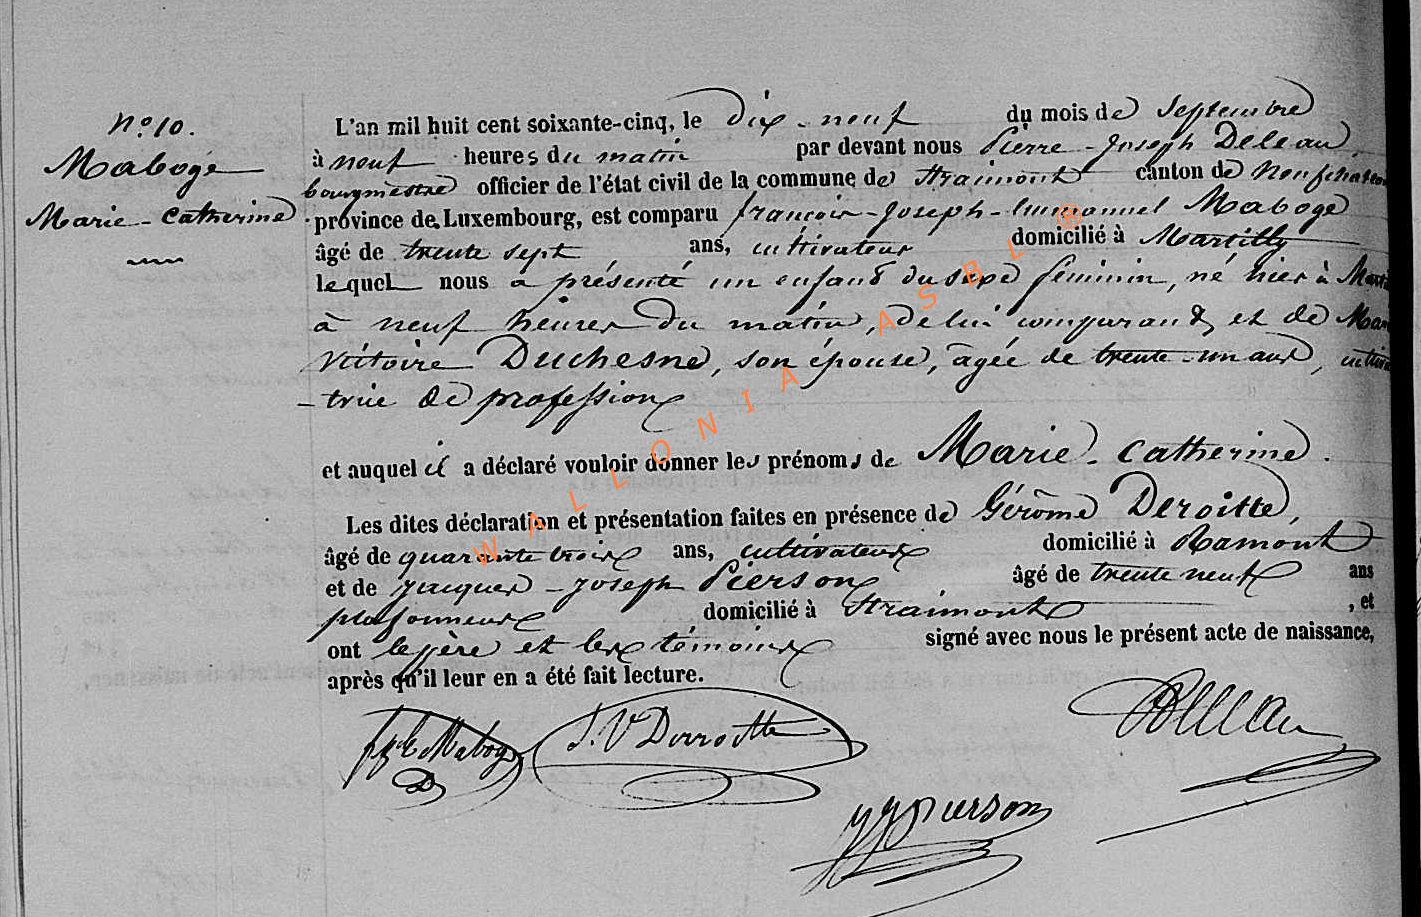 N° 10.
Maboge
Marie-Catherine
L'an mil huit cent soixante-cinq, le dix-neuf du mois de Septembre
à neuf heures du matin par devant nous Pierre-Joseph Deleau,
bourgmestre officier de l'état civil de la commune de Straimont canton de Neufchateau
province de Luxembourg, est comparu françois-Joseph-Emmanuel Maboge
âgé de trente sept ans, cultivateur domicilié à Martilly
lequel nous a présenté un enfant du sexe féminin, né hier à
à neuf heures du matin, de lui comparant, et de
Victoire Duchesne, son épouse, âgée de trente-un ans,
-trice de profession
et auquel il a déclaré vouloir donner les prénoms de Marie-Catherine.
Les dites déclaration et présentation faites en présence de Gérôme Deroitte,
âgé de quarante trois ans, cultivateur domicilié à Ramont
et de Jacques-Joseph Pierson âgé de trente neuf ans
plafonneur domicilié à Straimont , et
ont le père et les témoins signé avec nous le présent acte de naissance,
après qu'il leur en a été fait lecture.
Maboge
Derroitte
Deleau
JJ Pierson
WALLONIA ASBL ®